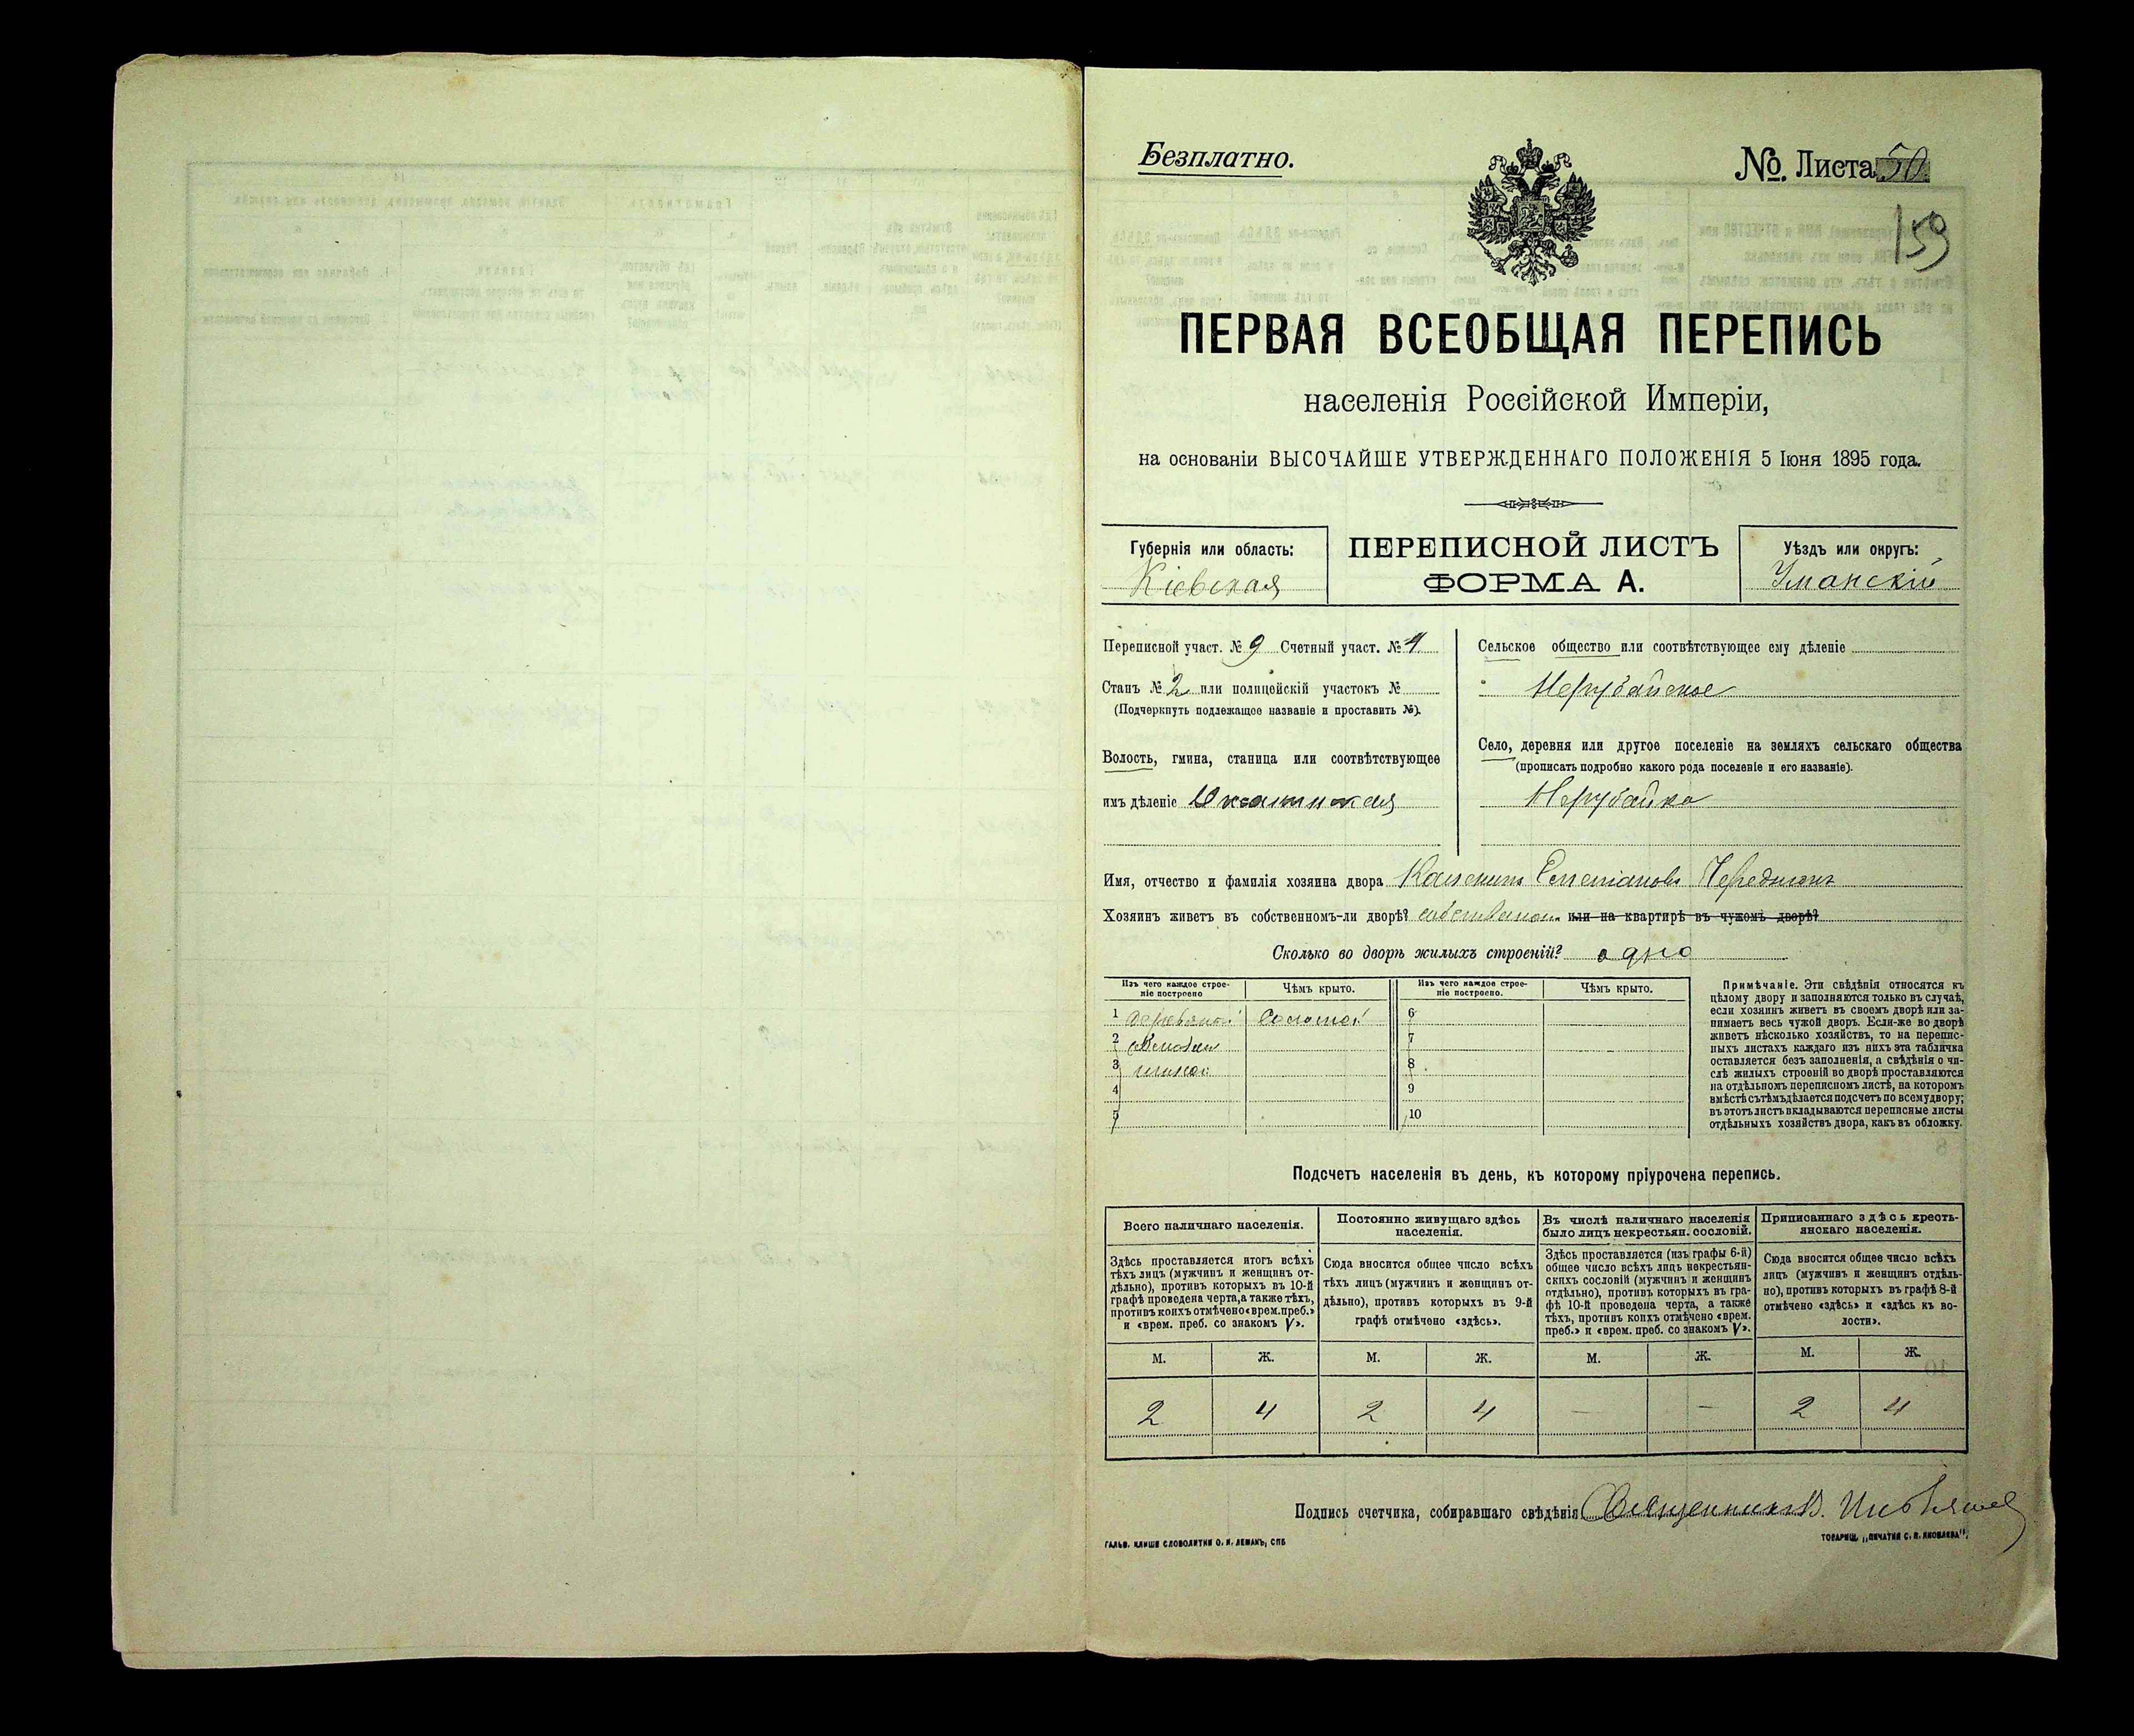 Безплатно.
№. Листа 50
159
ПЕРВАЯ ВСЕОБЩАЯ ПЕРЕПИСЬ
населенія Россійской Имперіи,
на основаніи ВЫСОЧАЙШЕ УТВЕРЖДЕННАГО ПОЛОЖЕНІЯ 5 Іюня 1895 года.
Губернія или область:
Кіевская
ПЕРЕПИСНОЙ ЛИСТЪ
ФОРМА А.
Уѣздъ или округъ:
Уманскій
Переписной участ. № 9 Счетный участ. № 4
Станъ № 2 или полицейскій участокъ №
(Подчеркнуть подлежащое названіе и проставить №).
Волость, гмина, станица или соотвѣтствующее
имъ дѣленіе
Сельское общество или соотвѣтствующее ему дѣленіе
Нерубайское
Село, деревня или другое поселеніе на земляхъ сельскаго общества
(прописать подробно какого рода поселеніе и его названіе).
Нерубайка
Имя, отчество и фамилія хозяина двора
Хозяинъ живетъ въ собственномъ-ли дворѣ? или на квартирѣ въ чужомъ дворѣ?
Сколько во дворѣ жилыхъ строеній? одно
Изъ чего каждое строе-
ніе построено
Чѣмъ крыто.
Изъ чего каждое строе-
ніе построено.
Чѣмъ крыто.
1 6
2 7
3 8
4 9
5 10
Примѣчаніе. Эти свѣдѣнія относятся къ
цѣлому двору и заполняются только въ случаѣ,
если хозяинъ живетъ въ своемъ дворѣ или за-
нимаетъ весь чужой дворъ. Если-же во дворѣ
живетъ нѣсколько хозяйствъ, то на перепис-
ныхъ листахъ каждаго изъ нихъ эта табличка
оставляется безъ заполненія, а свѣдѣнія о чи-
слѣ жилыхъ строеній во дворѣ проставляются
на отдѣльномъ переписномъ листѣ, на которомъ
вмѣстѣ съ тѣмъ дѣлается подсчетъ по всему двору;
въ этотъ листъ вкладываются переписные листы
отдѣльныхъ хозяйствъ двора, какъ въ обложку.
Подсчетъ населенія въ день, къ которому пріурочена перепись.
Всего наличнаго населенія.
Постоянно живущаго здѣсь
населенія.
Въ числѣ наличнаго населенія
было лицъ некрестьян. сословій.
Приписаннаго здѣсь кресть-
янскаго населенія.
Здѣсь проставляется итогъ всѣхъ
тѣхъ лицъ (мужчинъ и женщинъ от-
дѣльно), противъ которыхъ въ 10-й
графѣ проведена черта, а также тѣхъ,
противъ коихъ отмѣчено «врем. преб.»
и «врем. преб. со знакомъ V».
Сюда вносится общее число всѣхъ
тѣхъ лицъ (мужчинъ и женщинъ от-
дѣльно), противъ которыхъ въ 9-й
графѣ отмѣчено «здѣсь».
Здѣсь проставляется (изъ графы 6-й)
общее число всѣхъ лицъ некрестьян-
скихъ сословій (мужчинъ и женщинъ
отдѣльно), противъ которыхъ въ гра-
фѣ 10-й проведена черта, а также
тѣхъ, противъ коихъ отмѣчено «врем.
преб.» и «врем. преб. со знакомъ V».
Сюда вносится общее число всѣхъ
лицъ (мужчинъ и женщинъ отдѣль-
но), противъ которыхъ въ графѣ 8-й
отмѣчено «здѣсь» и «здѣсь къ во-
лости».
М. Ж. М. Ж. М. Ж. М. Ж.
2 4 2 4 — — 2 4
Подпись счетчика, собиравшаго свѣдѣнія Священникъ
ГАЛЬВ. КЛИШЕ СЛОВОЛИТНИ О. И. ЛЕМАНЪ, СПБ
ТОВАРИЩ. „ПЕЧАТНЯ С. П. ЯКОВЛЕВА".